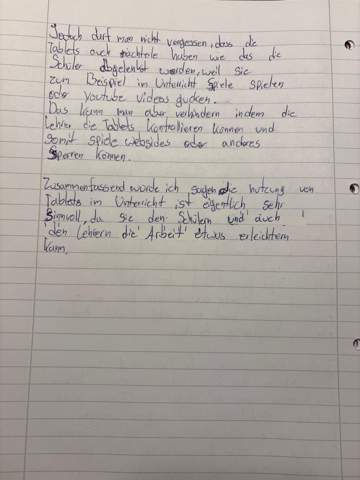 Jedoch darf man nicht vergessen, dass die
Tablets auch nachteile haben wie das die
Schüler abgelenkt werden, weil sie
zum Beispiel im Unterricht Spiele spielen
oder youtube videos gucken.
Das kann man aber verhindern indem die
Lehrer die Tablets kontrollieren können und
somit spiele websides oder anderes
Sperren können.
Zusammenfassend würde ich sagen die nutzung von
Tablets im Unterricht ist eigentlich sehr
Signvoll, da sie den Schülern und auch
den Lehrern die Arbeit etwas erleichtern
kann.